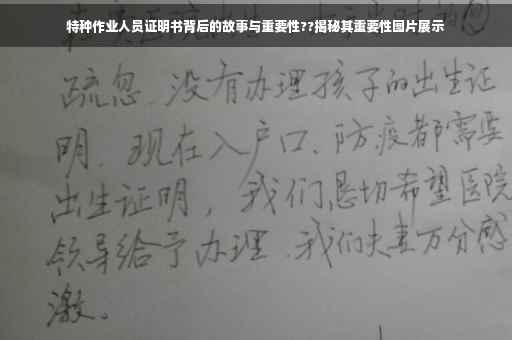 特种作业人员证明书背后的故事与重要性??揭秘其重要性图片展示
疏忽、没有办理孩子的出生证
明、现在入户口、防疫都需要
出生证明，我们恳切希望医院
领导给予办理、我们夫妻万分感
激。